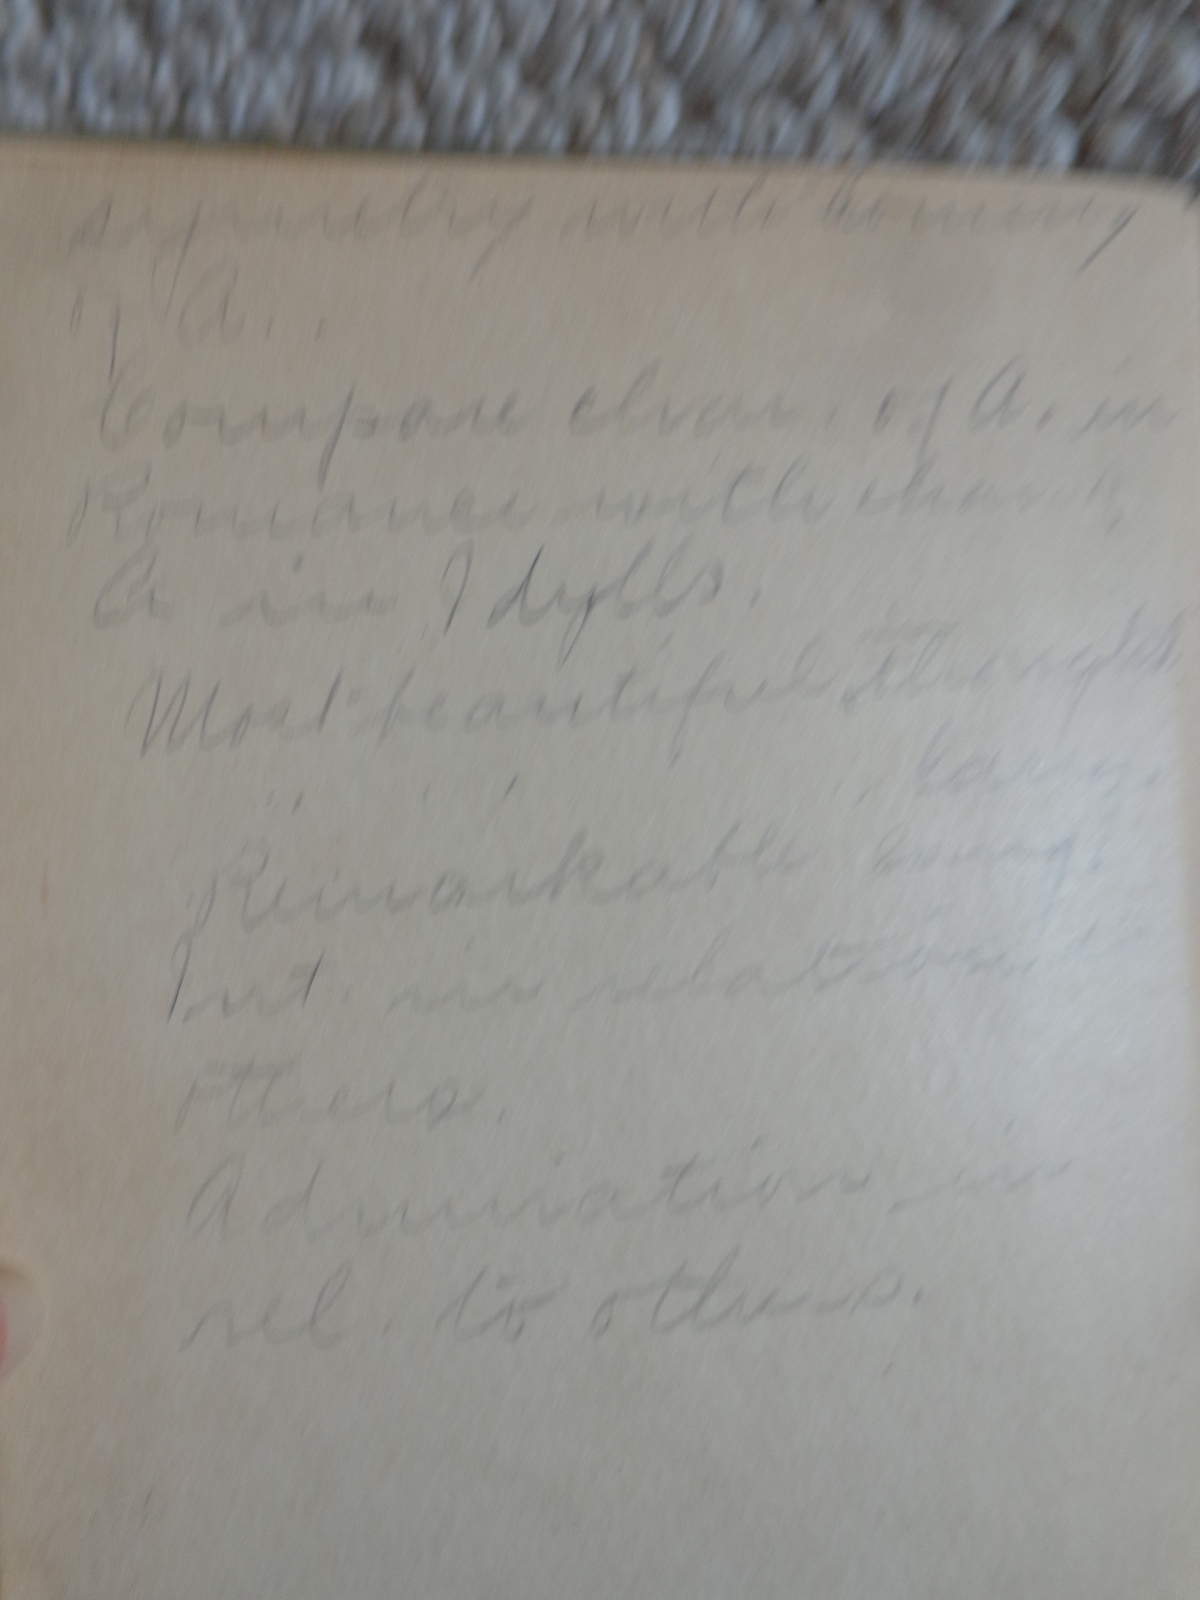 symetry with coming
of A.
Compare char. of A. in
Romance with char. of
A in Idylls.
Most beautiful thought
" " "
Remarkable
Int. in relation to
others.
Admiration in
rel. to others.